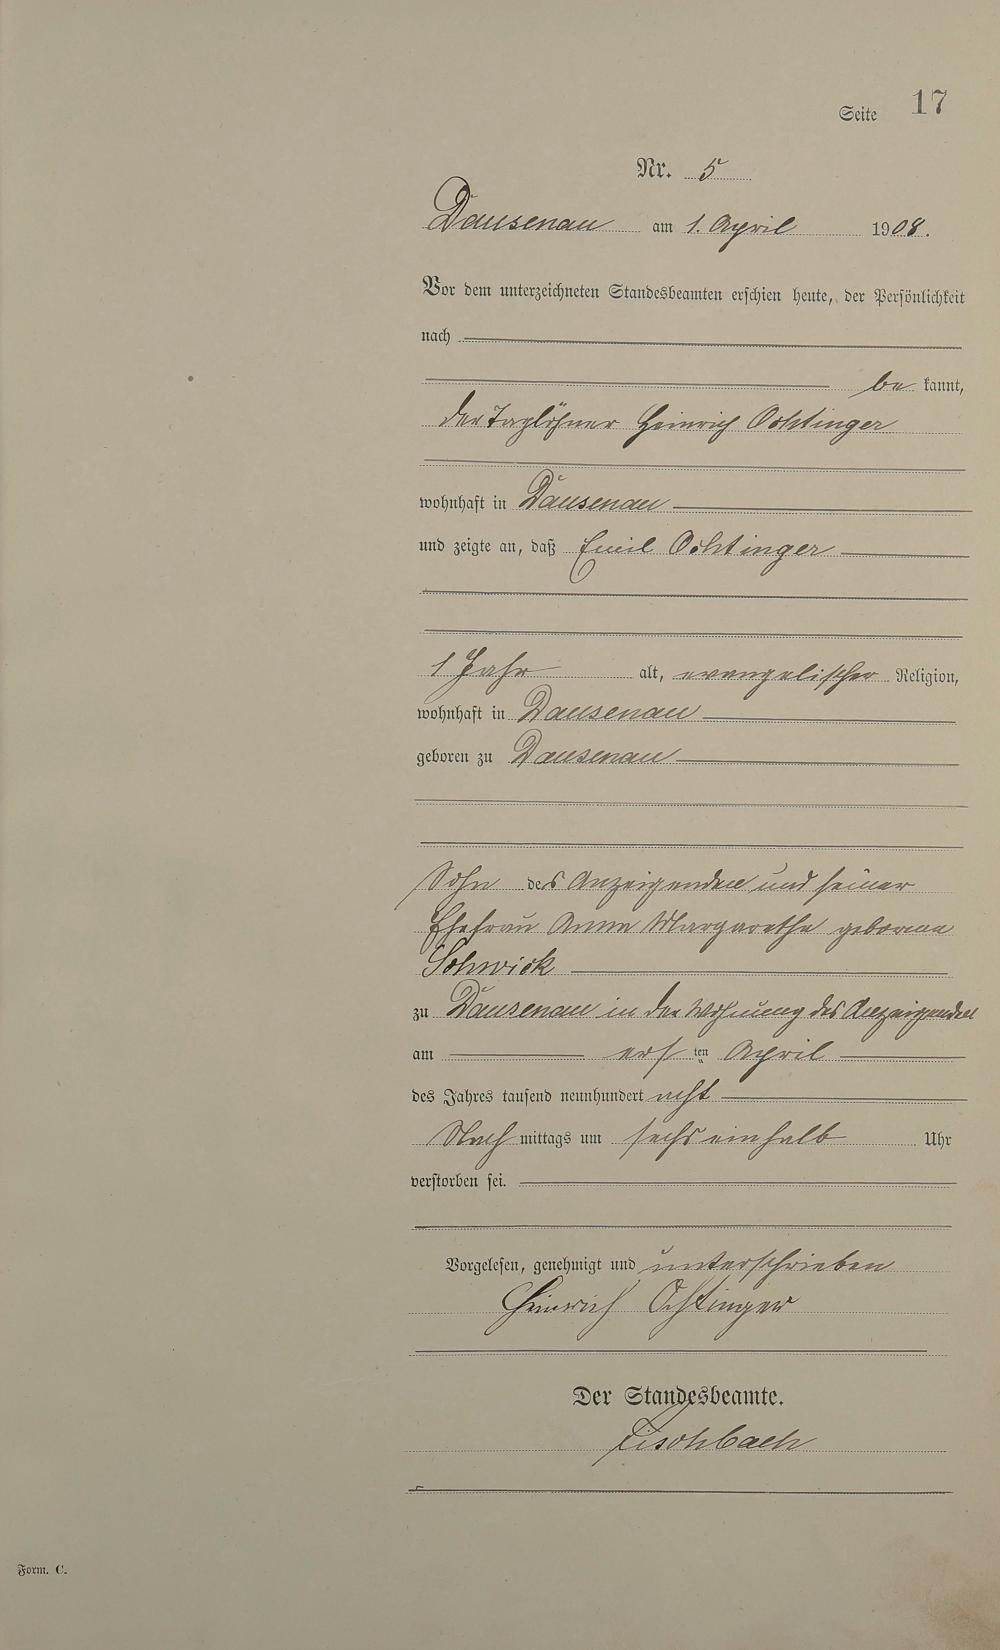 Seite 17
Nr. 5
Dausenau am 1. April 1908.
Vor dem unterzeichneten Standesbeamten erschien heute, der Persönlichkeit
nach
be kannt,
der Taglöhner Heinrich Ochtinger
wohnhaft in Dausenau
und zeigte an, daß Emil Ochtinger
1 Jahr alt, evangelischer Religion,
wohnhaft in Dausenau
geboren zu Dausenau
Sohn des Anzeigenden und seiner
Ehefrau Anna Margarethe geborene
Schwick
zu Dausenau in der Wohnung des Anzeigenden
am ersten April
des Jahres tausend neunhundert acht
Nach mittags um sechs einhalb Uhr
verstorben sei.
Vorgelesen, genehmigt und unterschrieben
Heinrich Ochtinger
Der Standesbeamte.
Fischbach
Form. C.